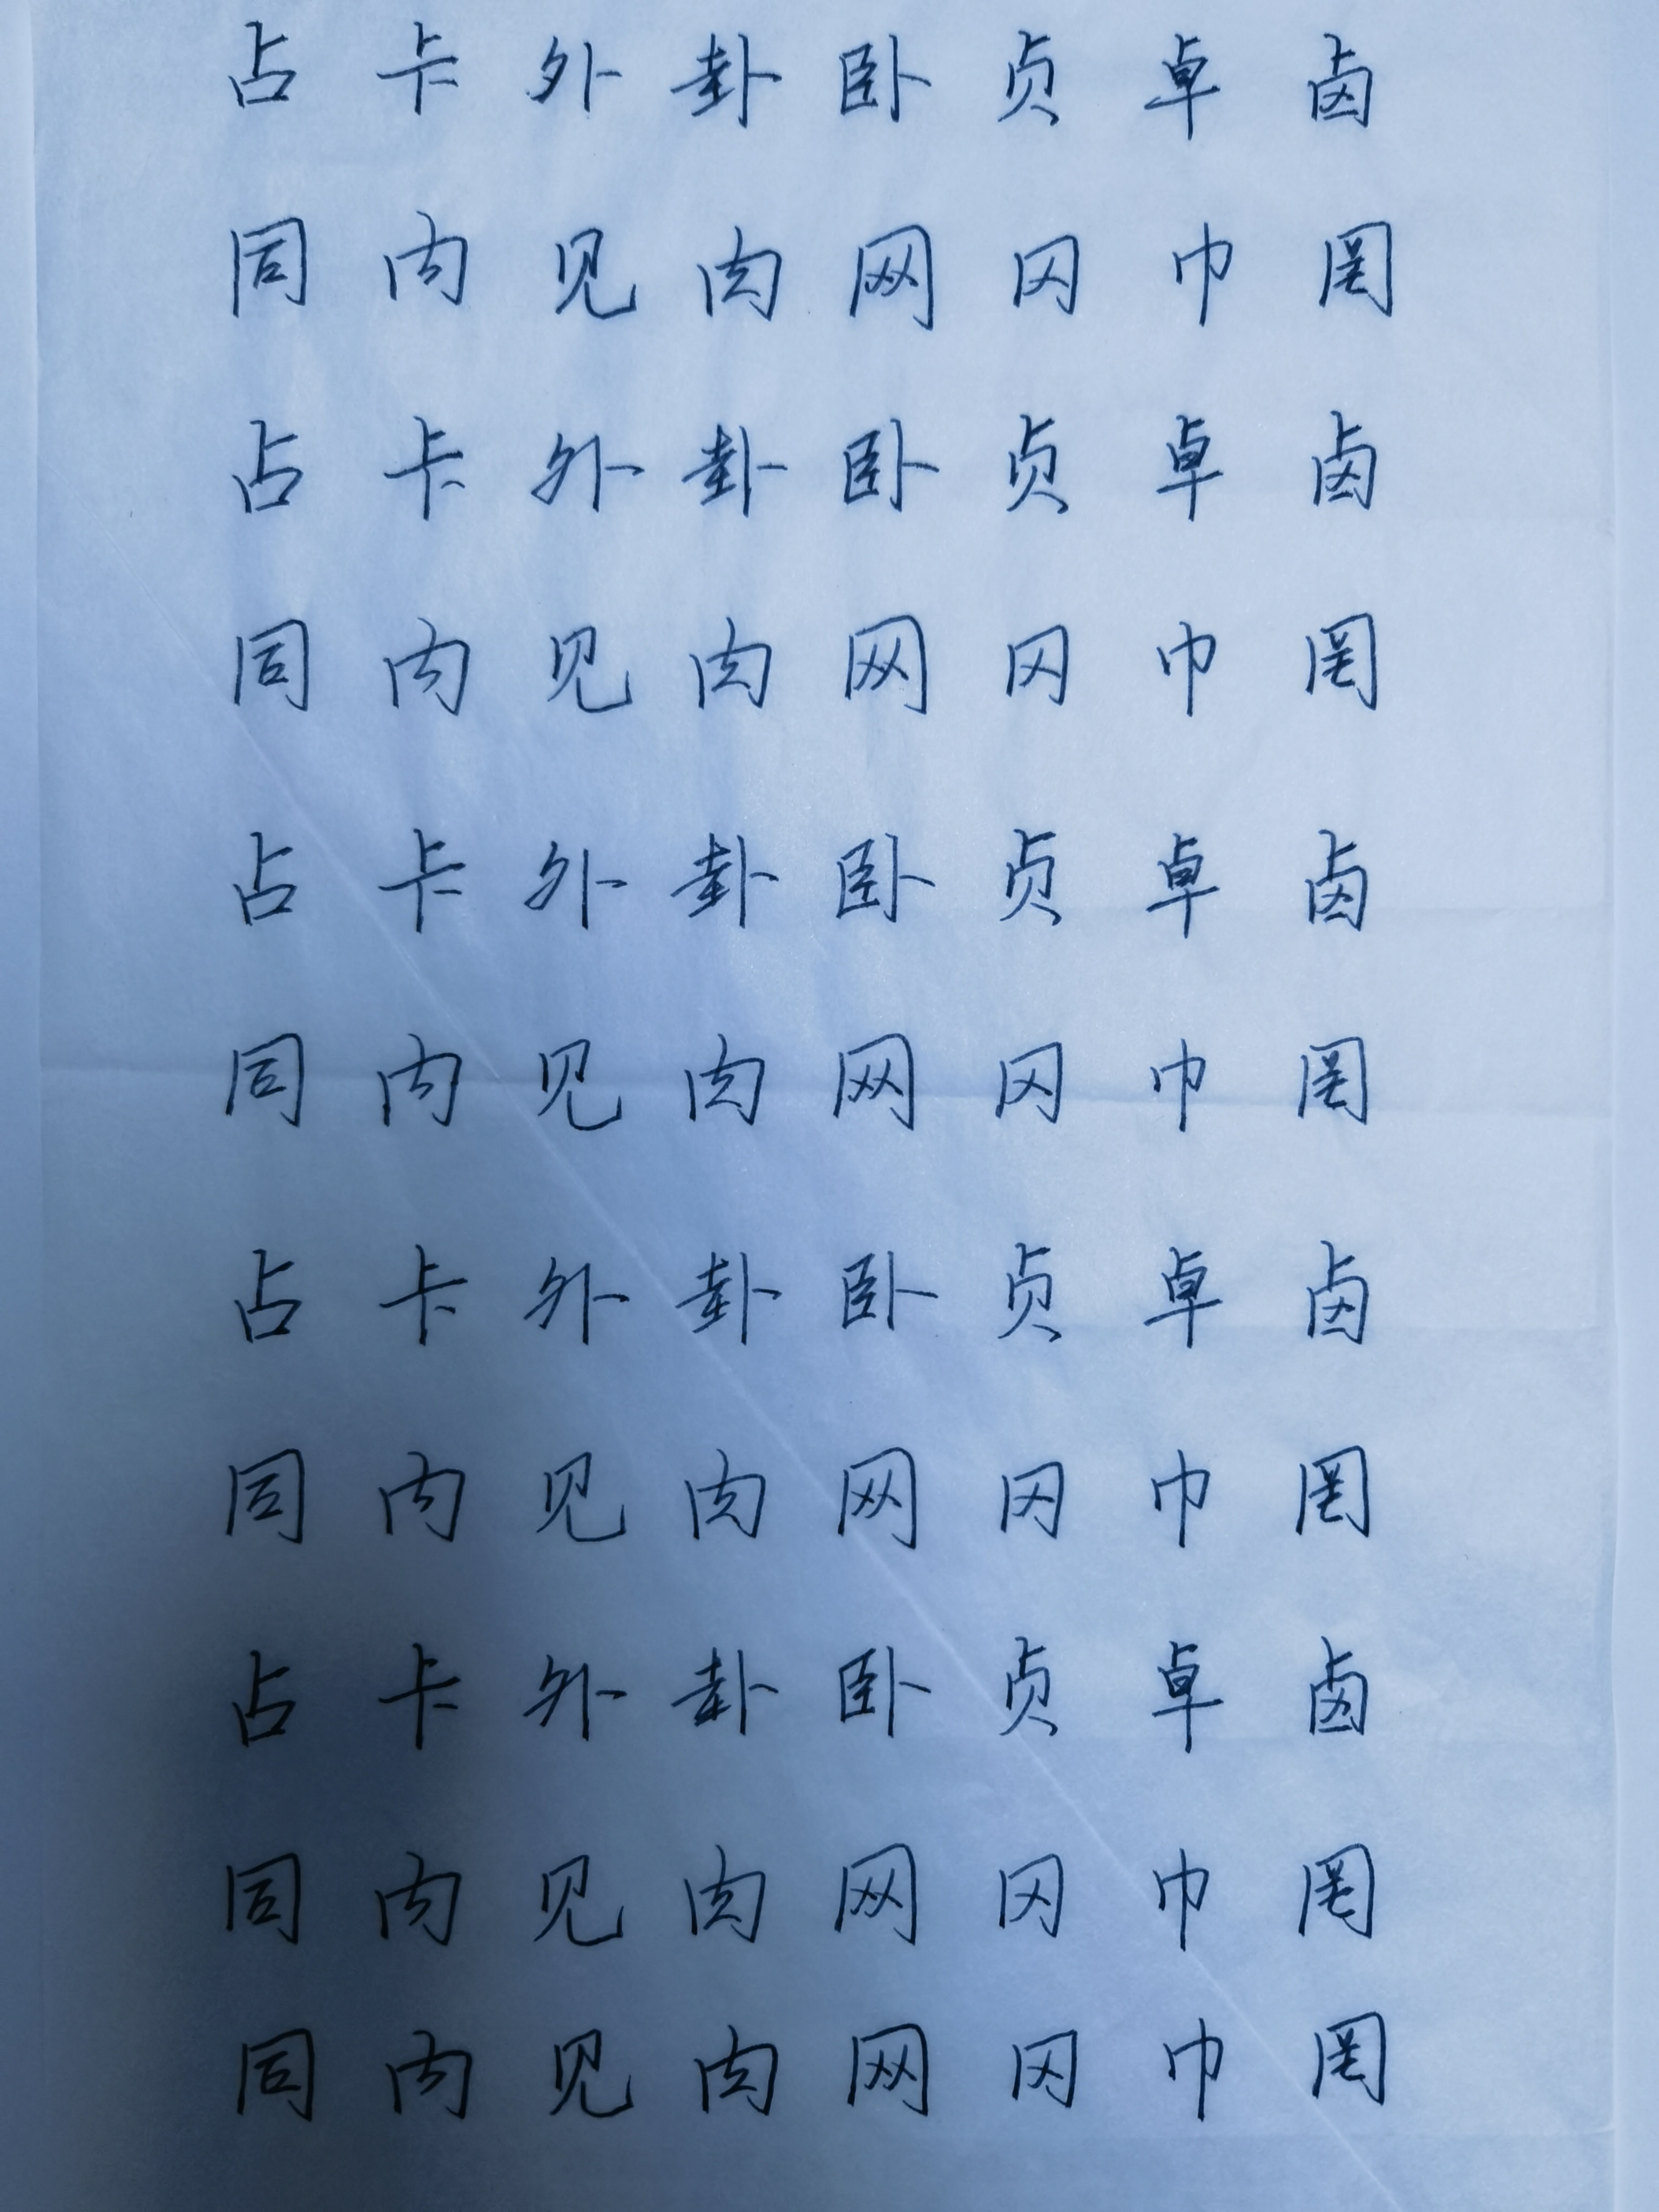 占 卡 外 卦 卧 贞 卓 卤
同 肉 见 肉 网 冈 巾 罔
占 卡 外 卦 卧 贞 卓 卤
同 肉 见 肉 网 冈 巾 罔
占 卡 外 卦 卧 贞 卓 卤
同 肉 见 肉 网 冈 巾 罔
占 卡 外 卦 卧 贞 卓 卤
同 肉 见 肉 网 冈 巾 罔
占 卡 外 卦 卧 贞 卓 卤
同 肉 见 肉 网 冈 巾 罔
同 肉 见 肉 网 冈 巾 罔